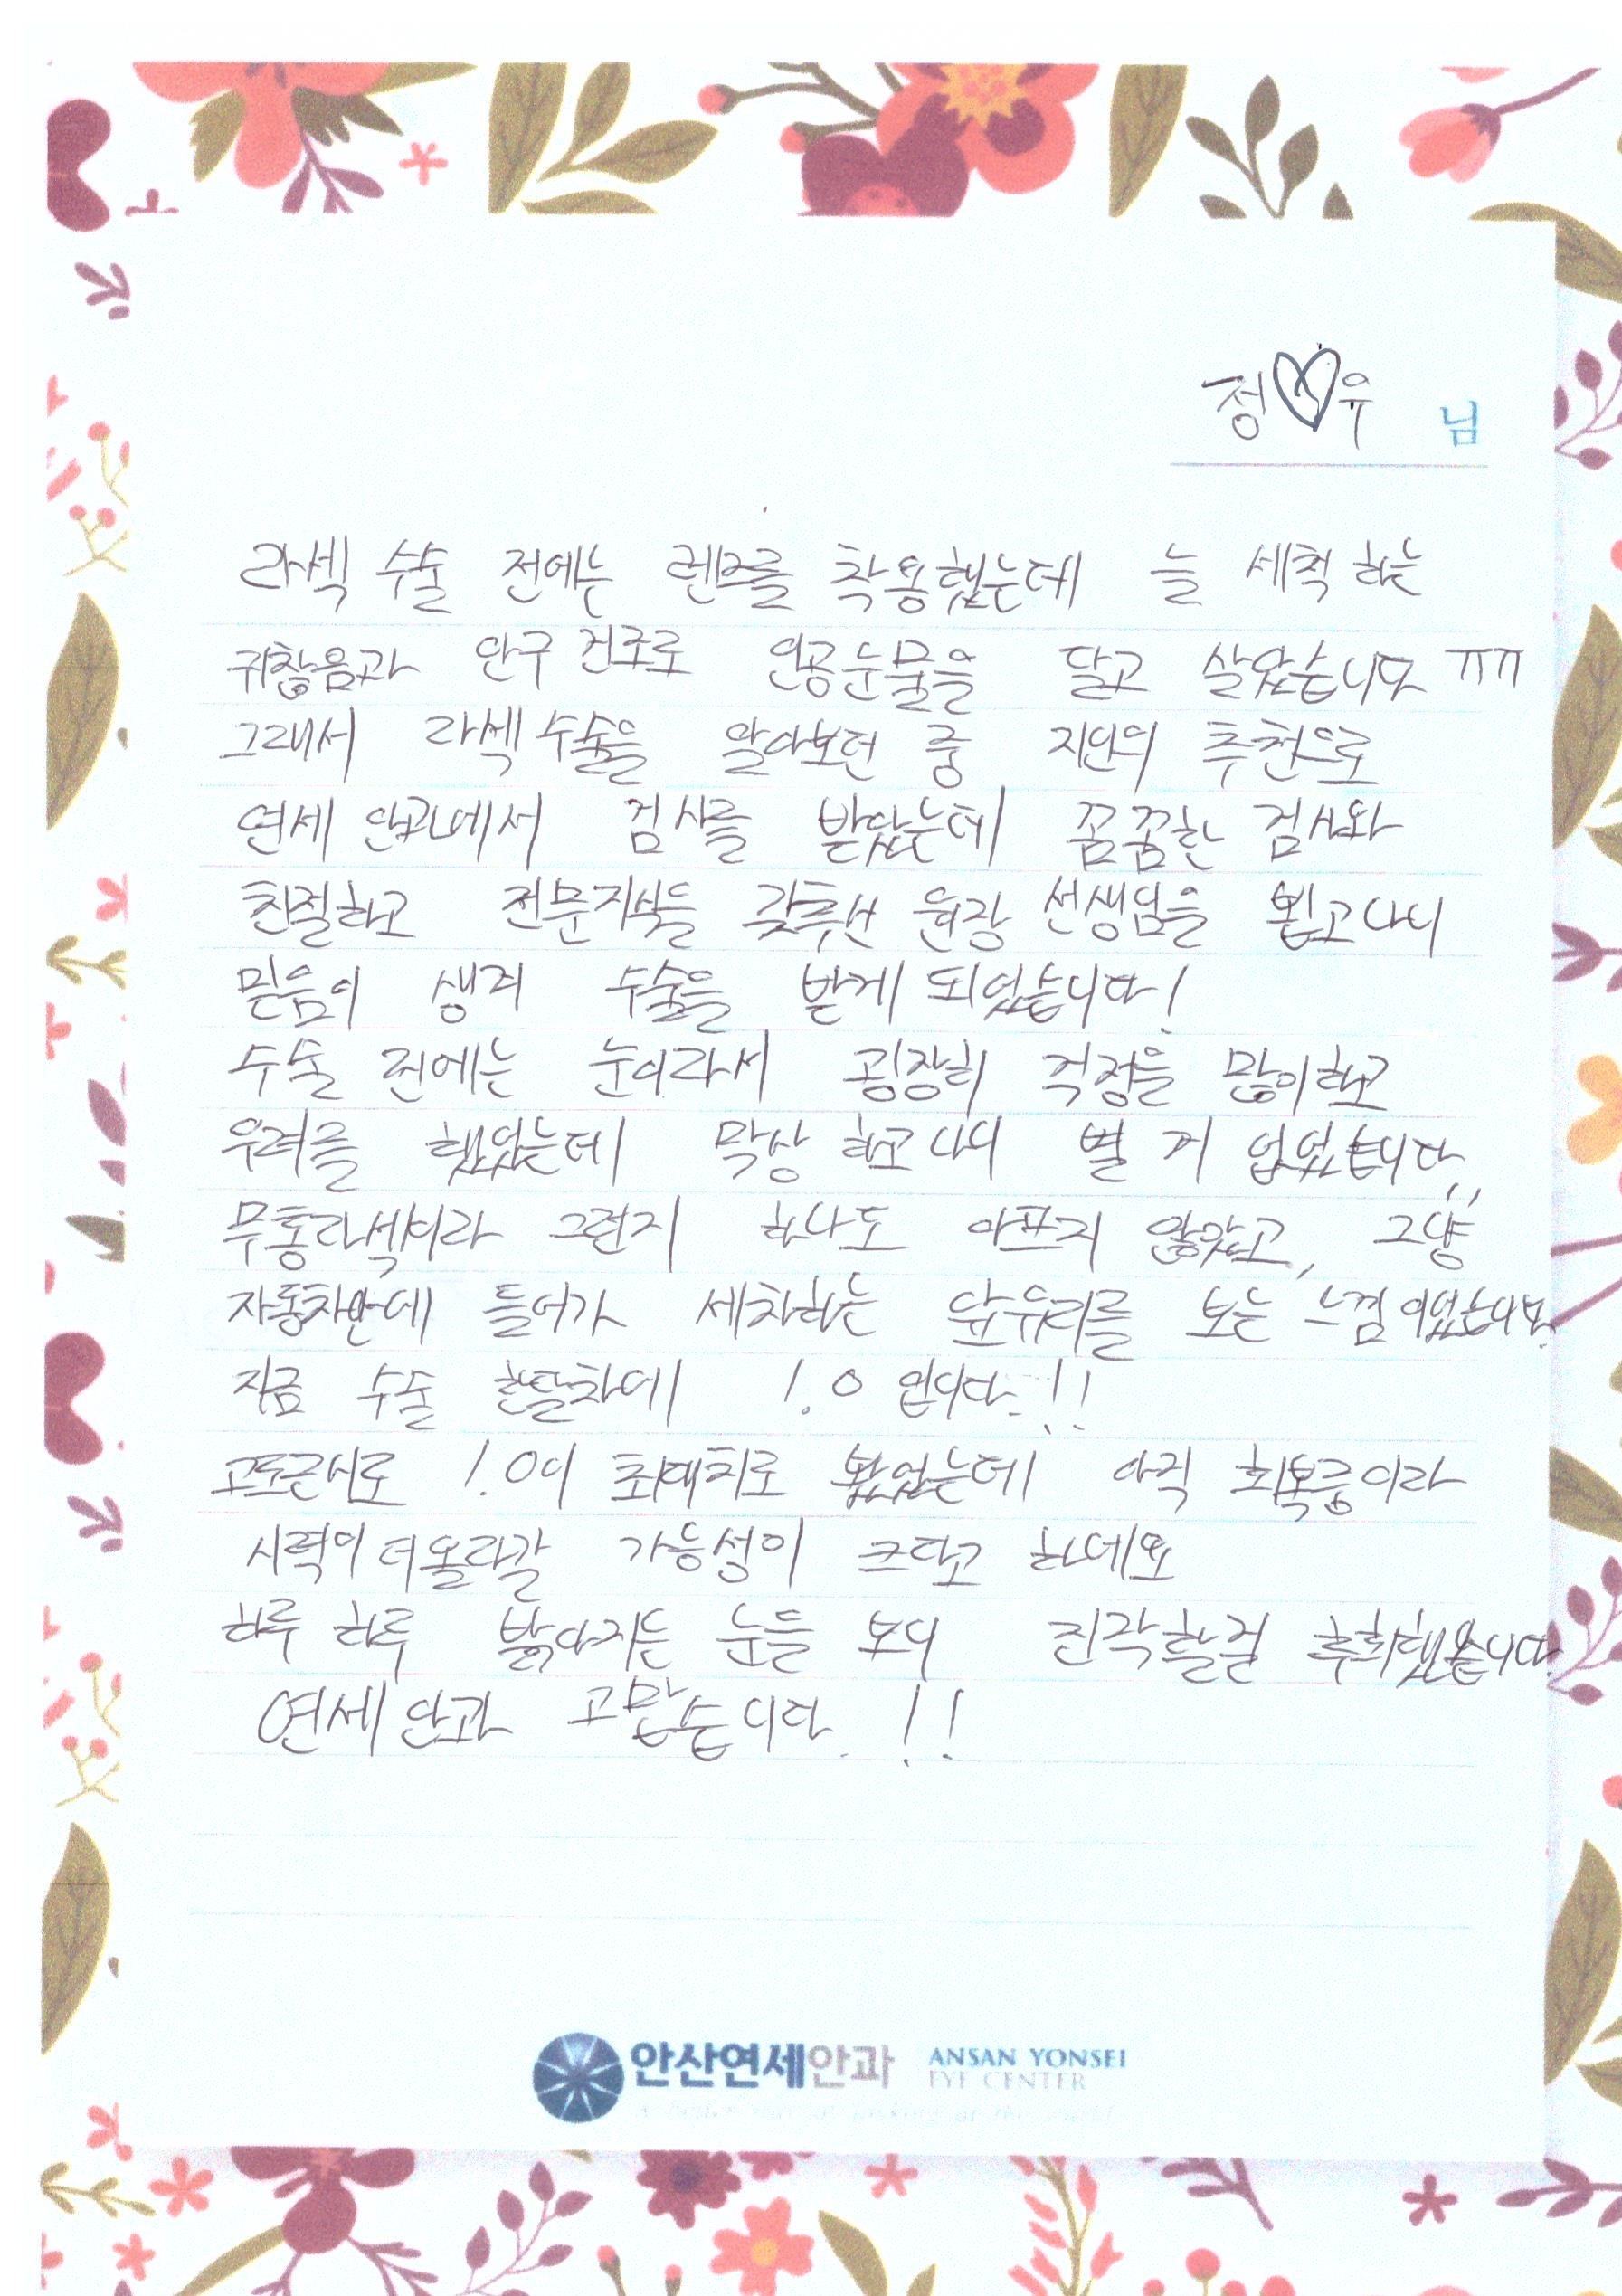 정♡우 님
라섹 수술 전에는 렌즈를 착용했는데 늘 세척 하는
귀찮음과 안구 건조로 인공눈물을 달고 살았습니다 ㅠㅠ
그래서 라섹 수술을 알아보던 중 지인의 추천으로
연세 안과에서 검사를 받았는데 꼼꼼한 검사와
친절하고 전문지식을 갖추신 원장 선생님을 뵙고나니
믿음이 생겨 수술을 받게 되었습니다!
수술 전에는 눈이라서 굉장히 걱정을 많이하고
우려를 했었는데 막상 하고나니 별 거 없었습니다,,
무통라섹이라 그런지 하나도 아프지 않았고, 그냥
자동차안에 들어가 세차하는 앞유리를 보는 느낌이었습니다.
지금 수술 한달차에 1.0 입니다.!!
고도근시로 1.0이 최대치로 봤었는데 아직 회복중이라
시력이 더 올라갈 가능성이 크다고 하네요
하루 하루 밝아지는 눈을 보니 진작할걸 후회했습니다
연세안과 고맙습니다.!!
안산연세안과 ANSAN YONSEI
EYE CENTER